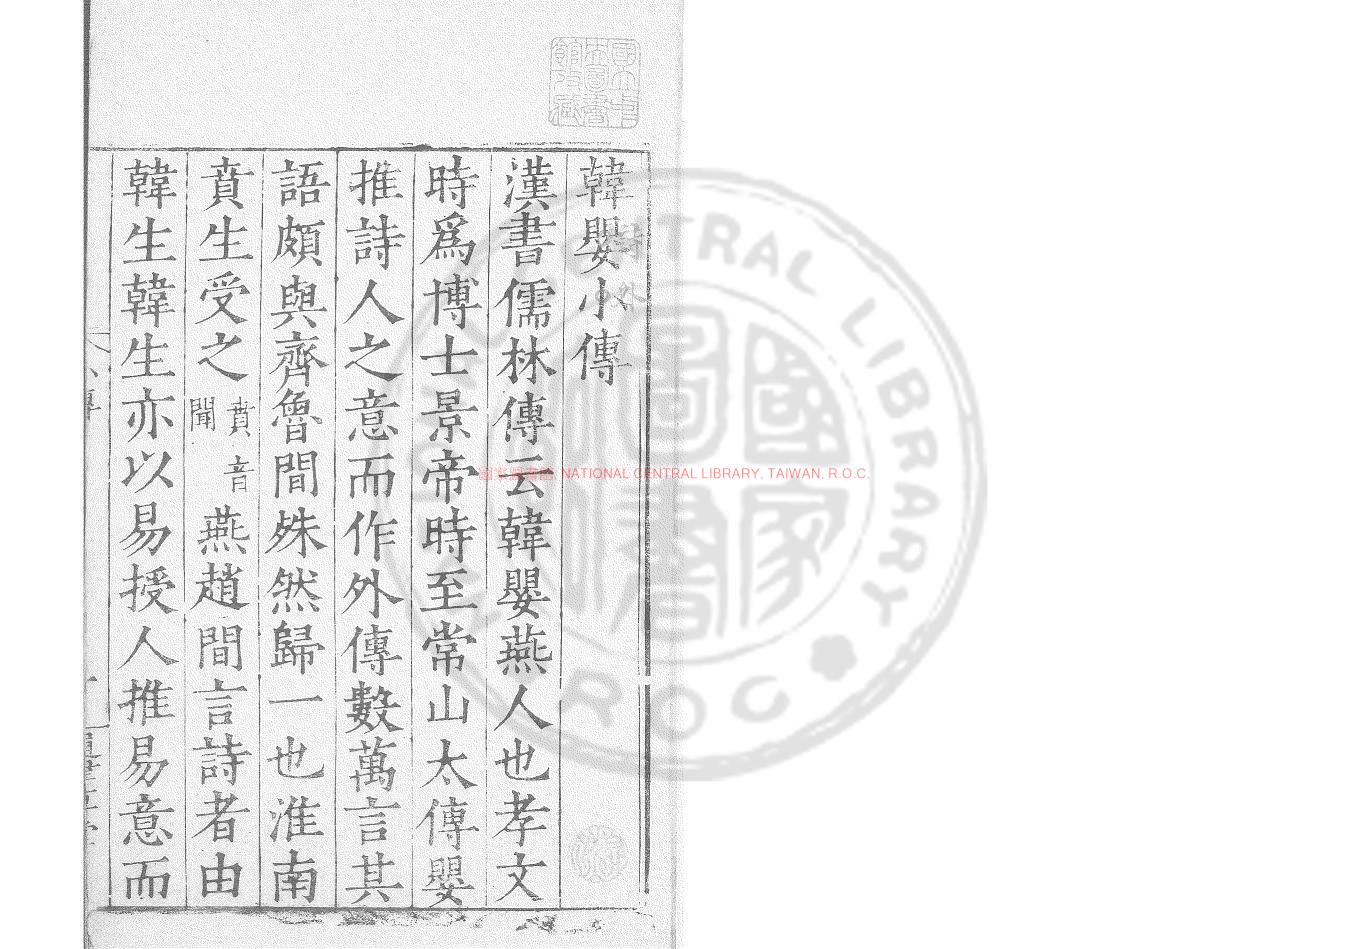 韓嬰小傳
漢書儒林傳云韓嬰燕人也孝文
時爲博士景帝時至常山太傅嬰
推詩人之意而作外傳數萬言其
語頗與齊魯間殊然歸一也淮南
賁生受之賁音聞燕趙間言詩者由
韓生韓生亦以易授人推易意而
國家圖書館, NATIONAL CENTRAL LIBRARY, TAIWAN, R.O.C.
國家圖書館
CENTRAL LIBRARY
R.O.C.
國立中央圖書館收藏